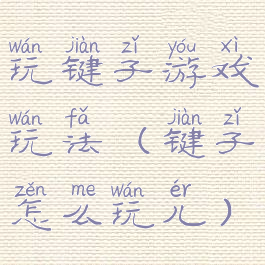 wán jiàn zǐ yóu xì
玩键子游戏
wán fǎ jiàn zǐ
玩法（键子
zěn me wán ér
怎么玩儿）